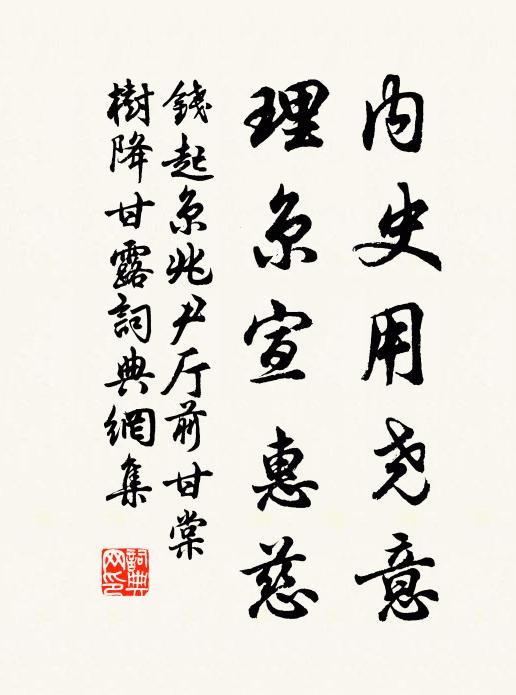 内史用尧意
理京宣惠慈
錢起京兆尹厅前甘棠
樹降甘露詞典網集
詞典
网印